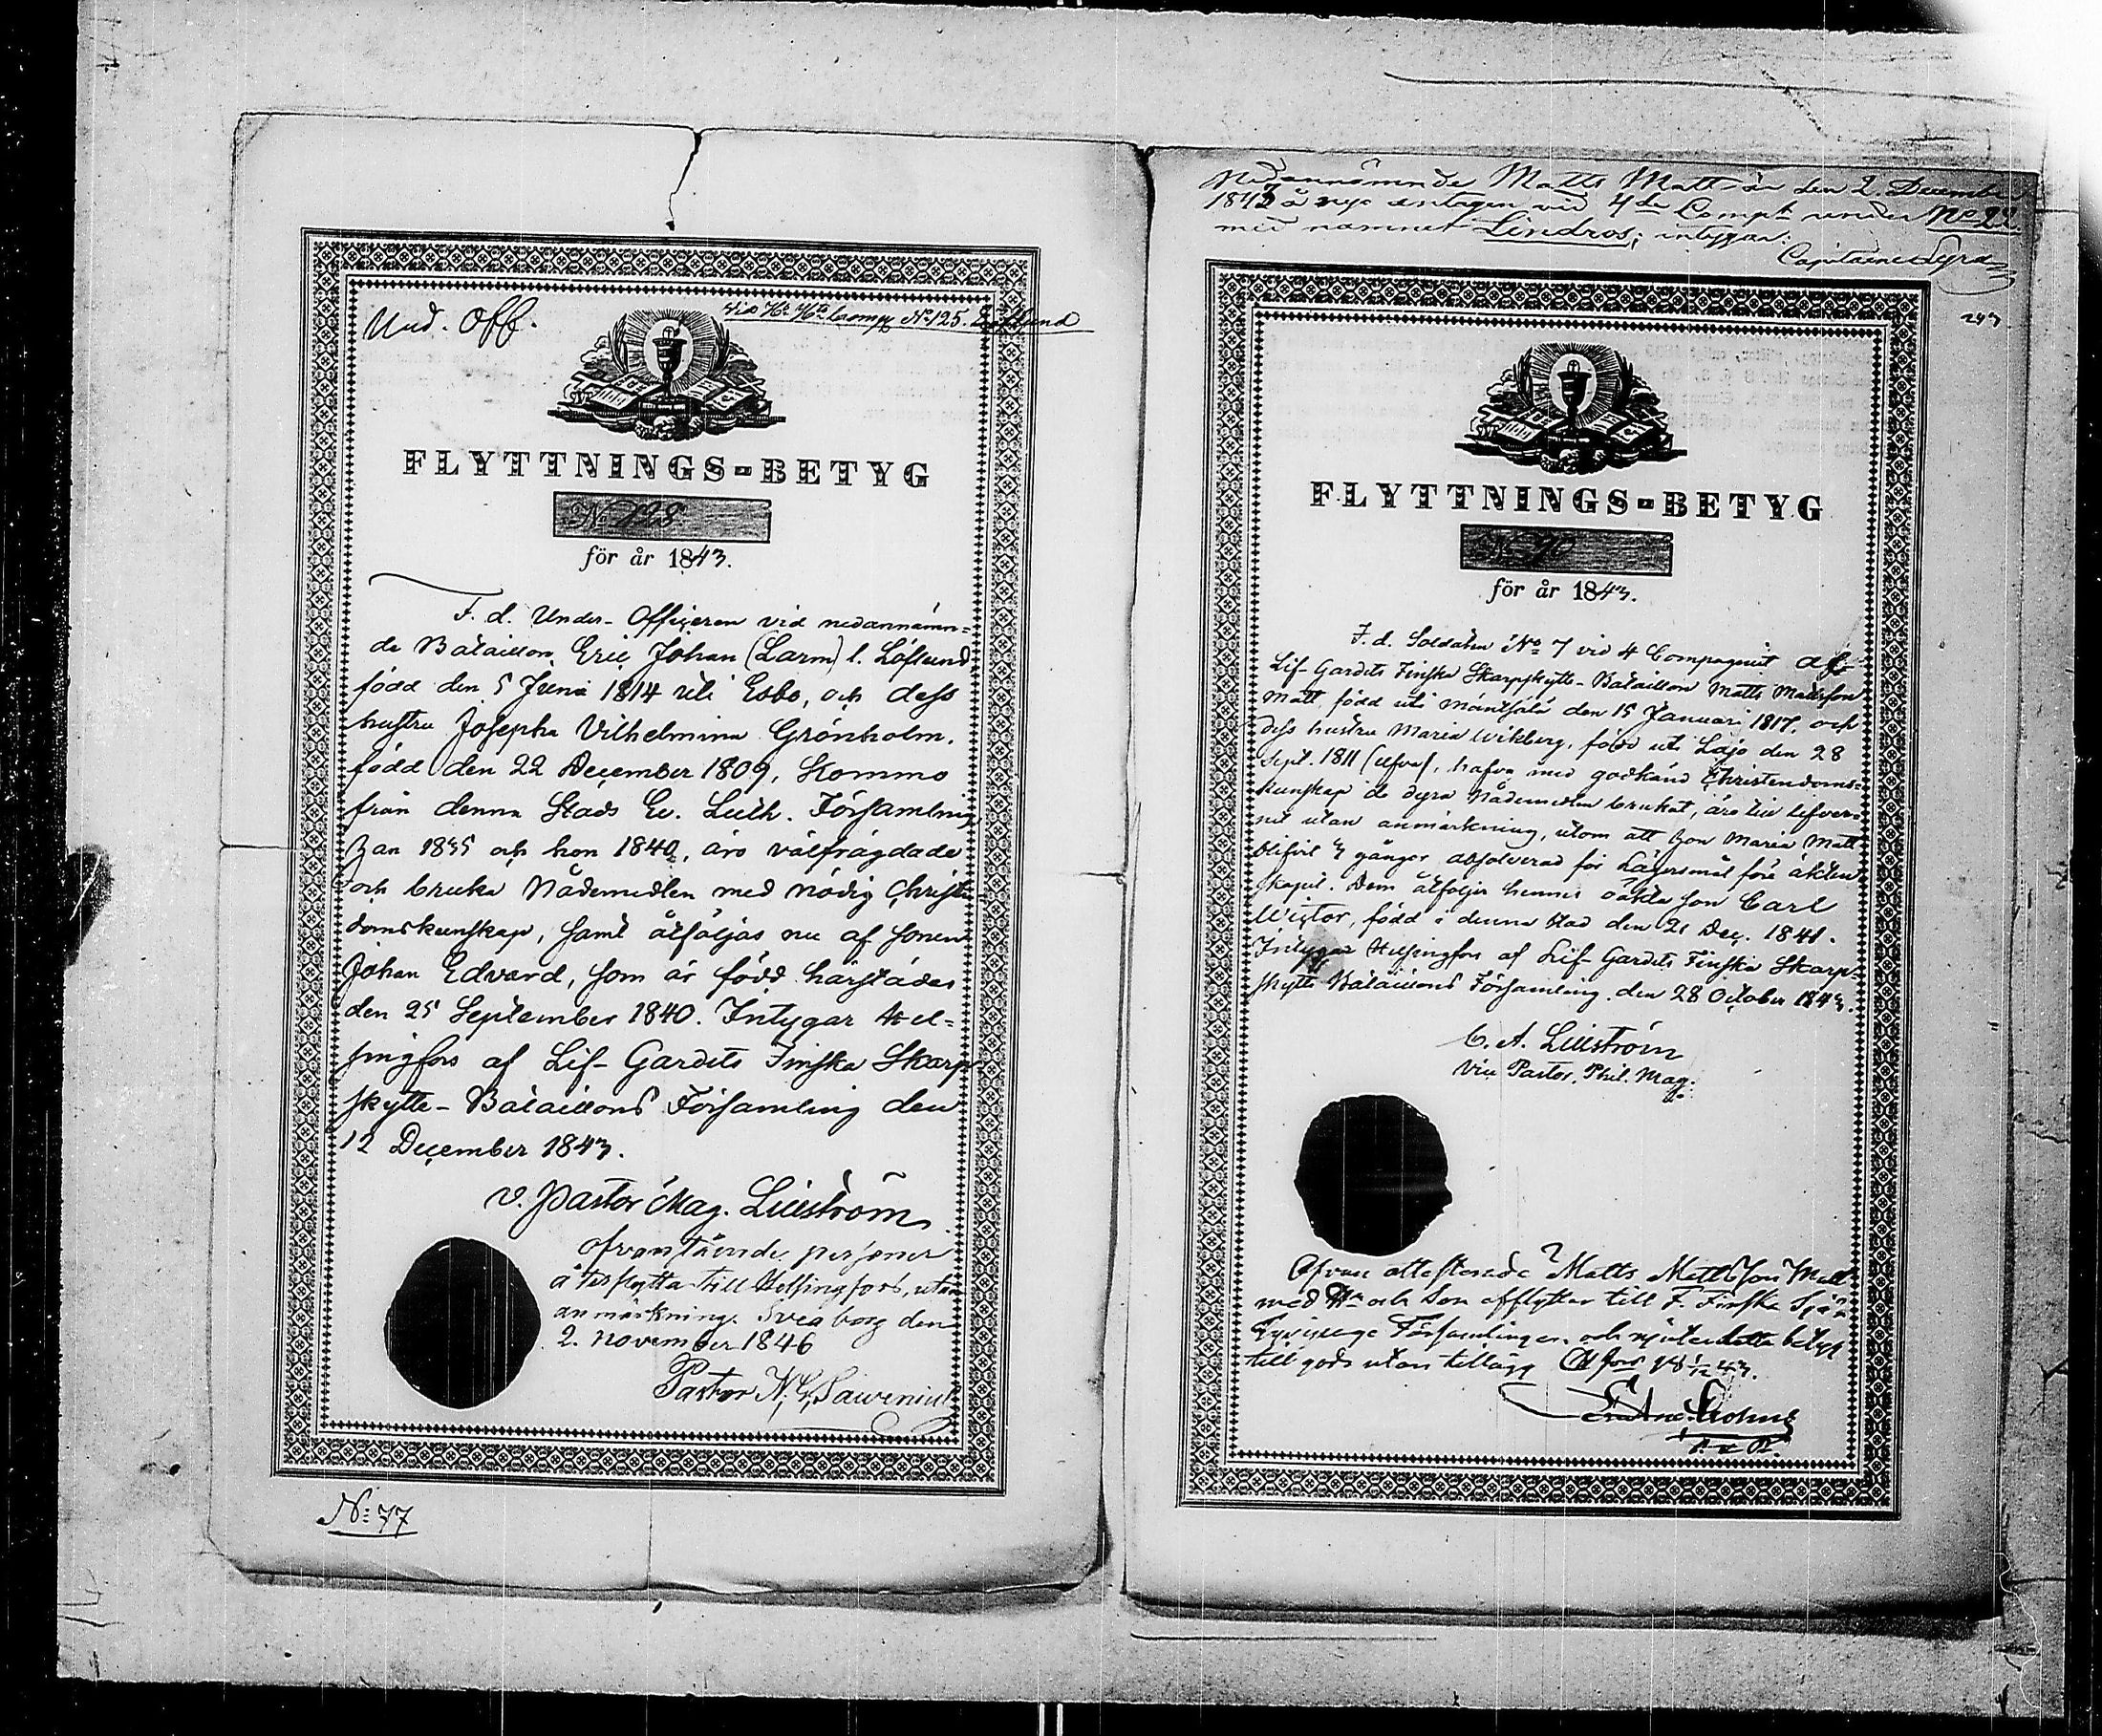 Und. Off.
Vid 4de Comp. No 125. Löflund
FLYTTNINGS-BETYG
No 128
för år 1843.
F. d. Under-Officeren vid nedannämn-
de Bataillon Eric Johan (Larm) l. Löflund
född den 5 Junii 1814 uti Esbo, och dess
hustru Josepha Vilhelmina Grönholm,
född den 22 December 1809, komma
från denna Stads Ev. Luth. Församling
han 1835 och hon 1840, äro välfrägdade
och bruka Nådemedlen med nödig Christen-
domskunskap, samt åtföljas nu af sonen
Johan Edvard, som är född härstädes
den 25 September 1840. Intygar Hel-
singfors af Lif-Gardets Finska Skarp-
skytte-Bataillons Församling den
12 December 1843.
v. Pastor Mag. Lillström
Ofvanstående personer
återflytta till Helsingfors, utan
anmärkning. Sveaborg den
2. November 1846
Pastor N. G.
No 77
Nedannämnde Matts Matts-son den 2. December
1843 å nyo antagen vid 4de Comp. under No 22.
med namnet Lindros; intygar.
Capitaine
243
FLYTTNINGS-BETYG
No 70
för år 1843.
F. d. Soldaten No 7 vid 4 Compagniet af
Lif-Gardets Finska Skarpskytte-Bataillon Matts Mattsson
Matt, född uti Mäntsälä den 15 Januari 1817, och
dess hustru Maria Wikberg, född uti Lojo den 28
Sept. 1811 (elfva), hafva med godkänd Christendoms-
kunskap de dyra Nådemedlen brukat, äro till lefver-
net utan anmärkning, utom att hon Maria Matt
blifvit 3 gånger absolverad för Lägersmål före äkten-
skapet. Dem åtföljer hennes oäkta son Carl
Victor, född i denna stad den 21 Dec. 1841.
Intygar Helsingfors af Lif-Gardets Finska Skarp-
skytte Bataillons Församling den 28 October 1843.
C. A. Lillström
Vice Pastor, Phil. Mag.
Ofvan attesterade Matts Mattsson Matt
med Hu och Son afflyttar till F. Finska Sjö
Församlingen och njuter detta betyg
till godo utan tillägg